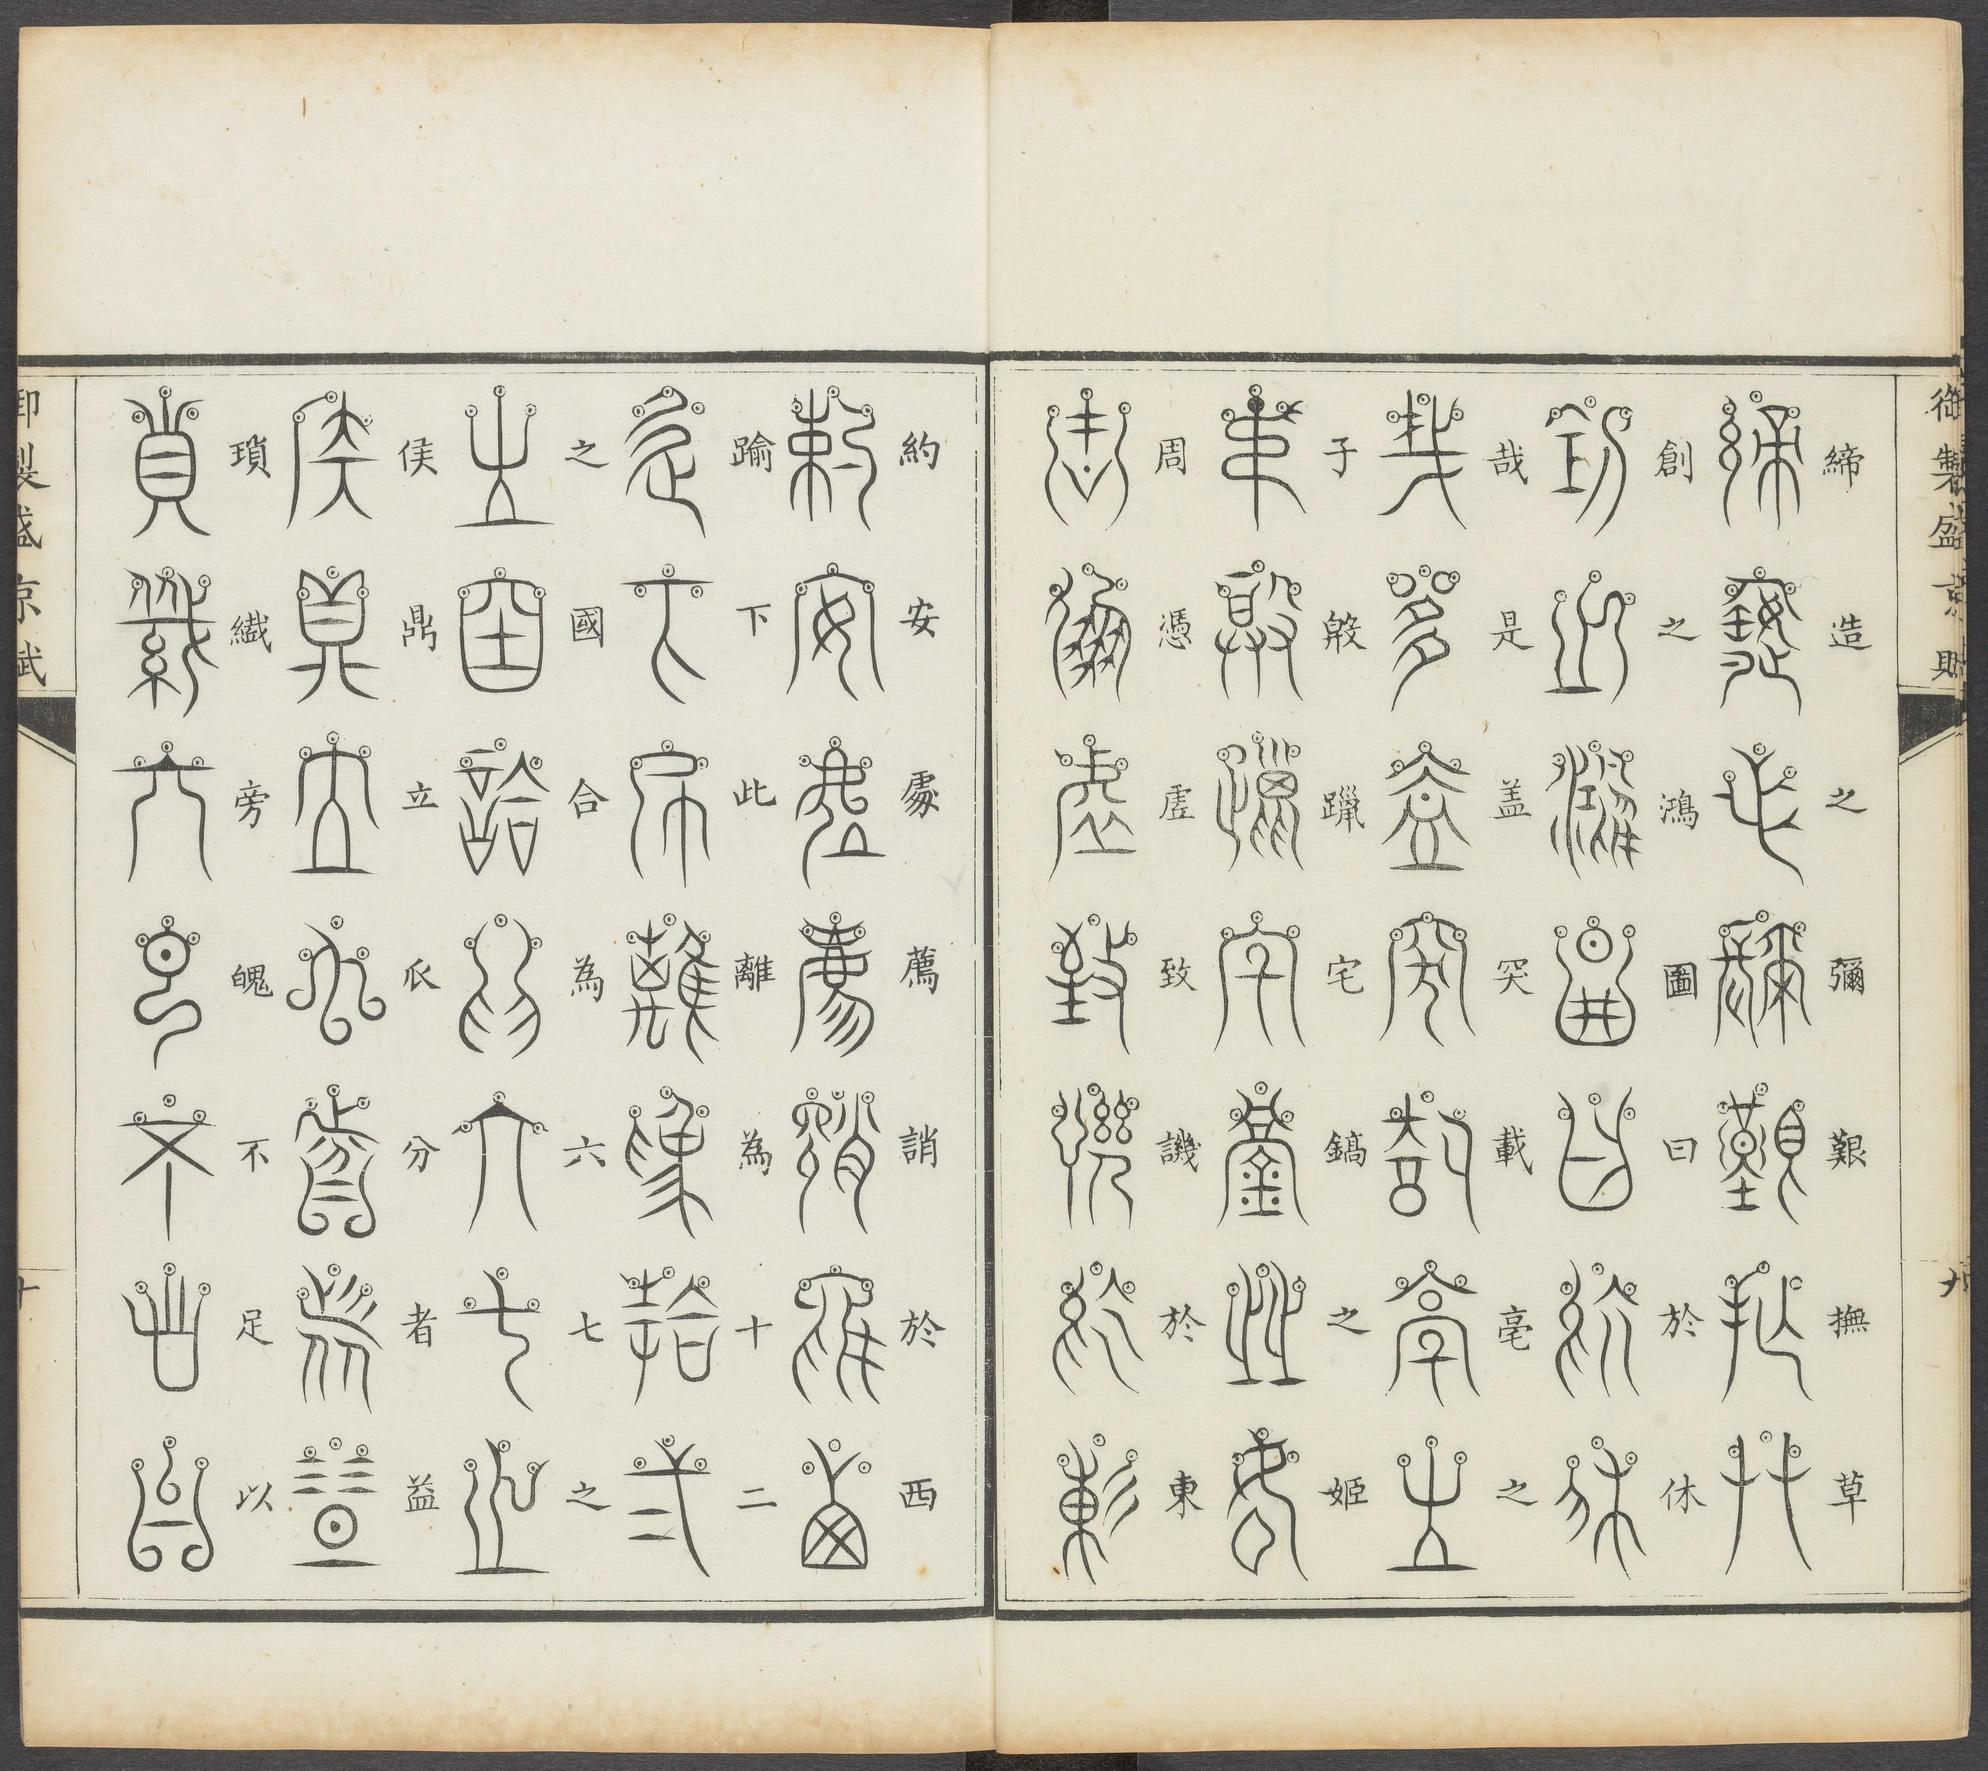 御製盛京賦
九
締造之彌艱撫草
創之鴻圖曰於休
哉是盖突載亳之
子殷躐宅鎬之姬
周憑虗致譏於東
約安處薦誚於西
踰下此離為十二
之國合為六七之
侯鼎立𤓰分者益
瑣纖旁魄不足以
御製盛京賦
十